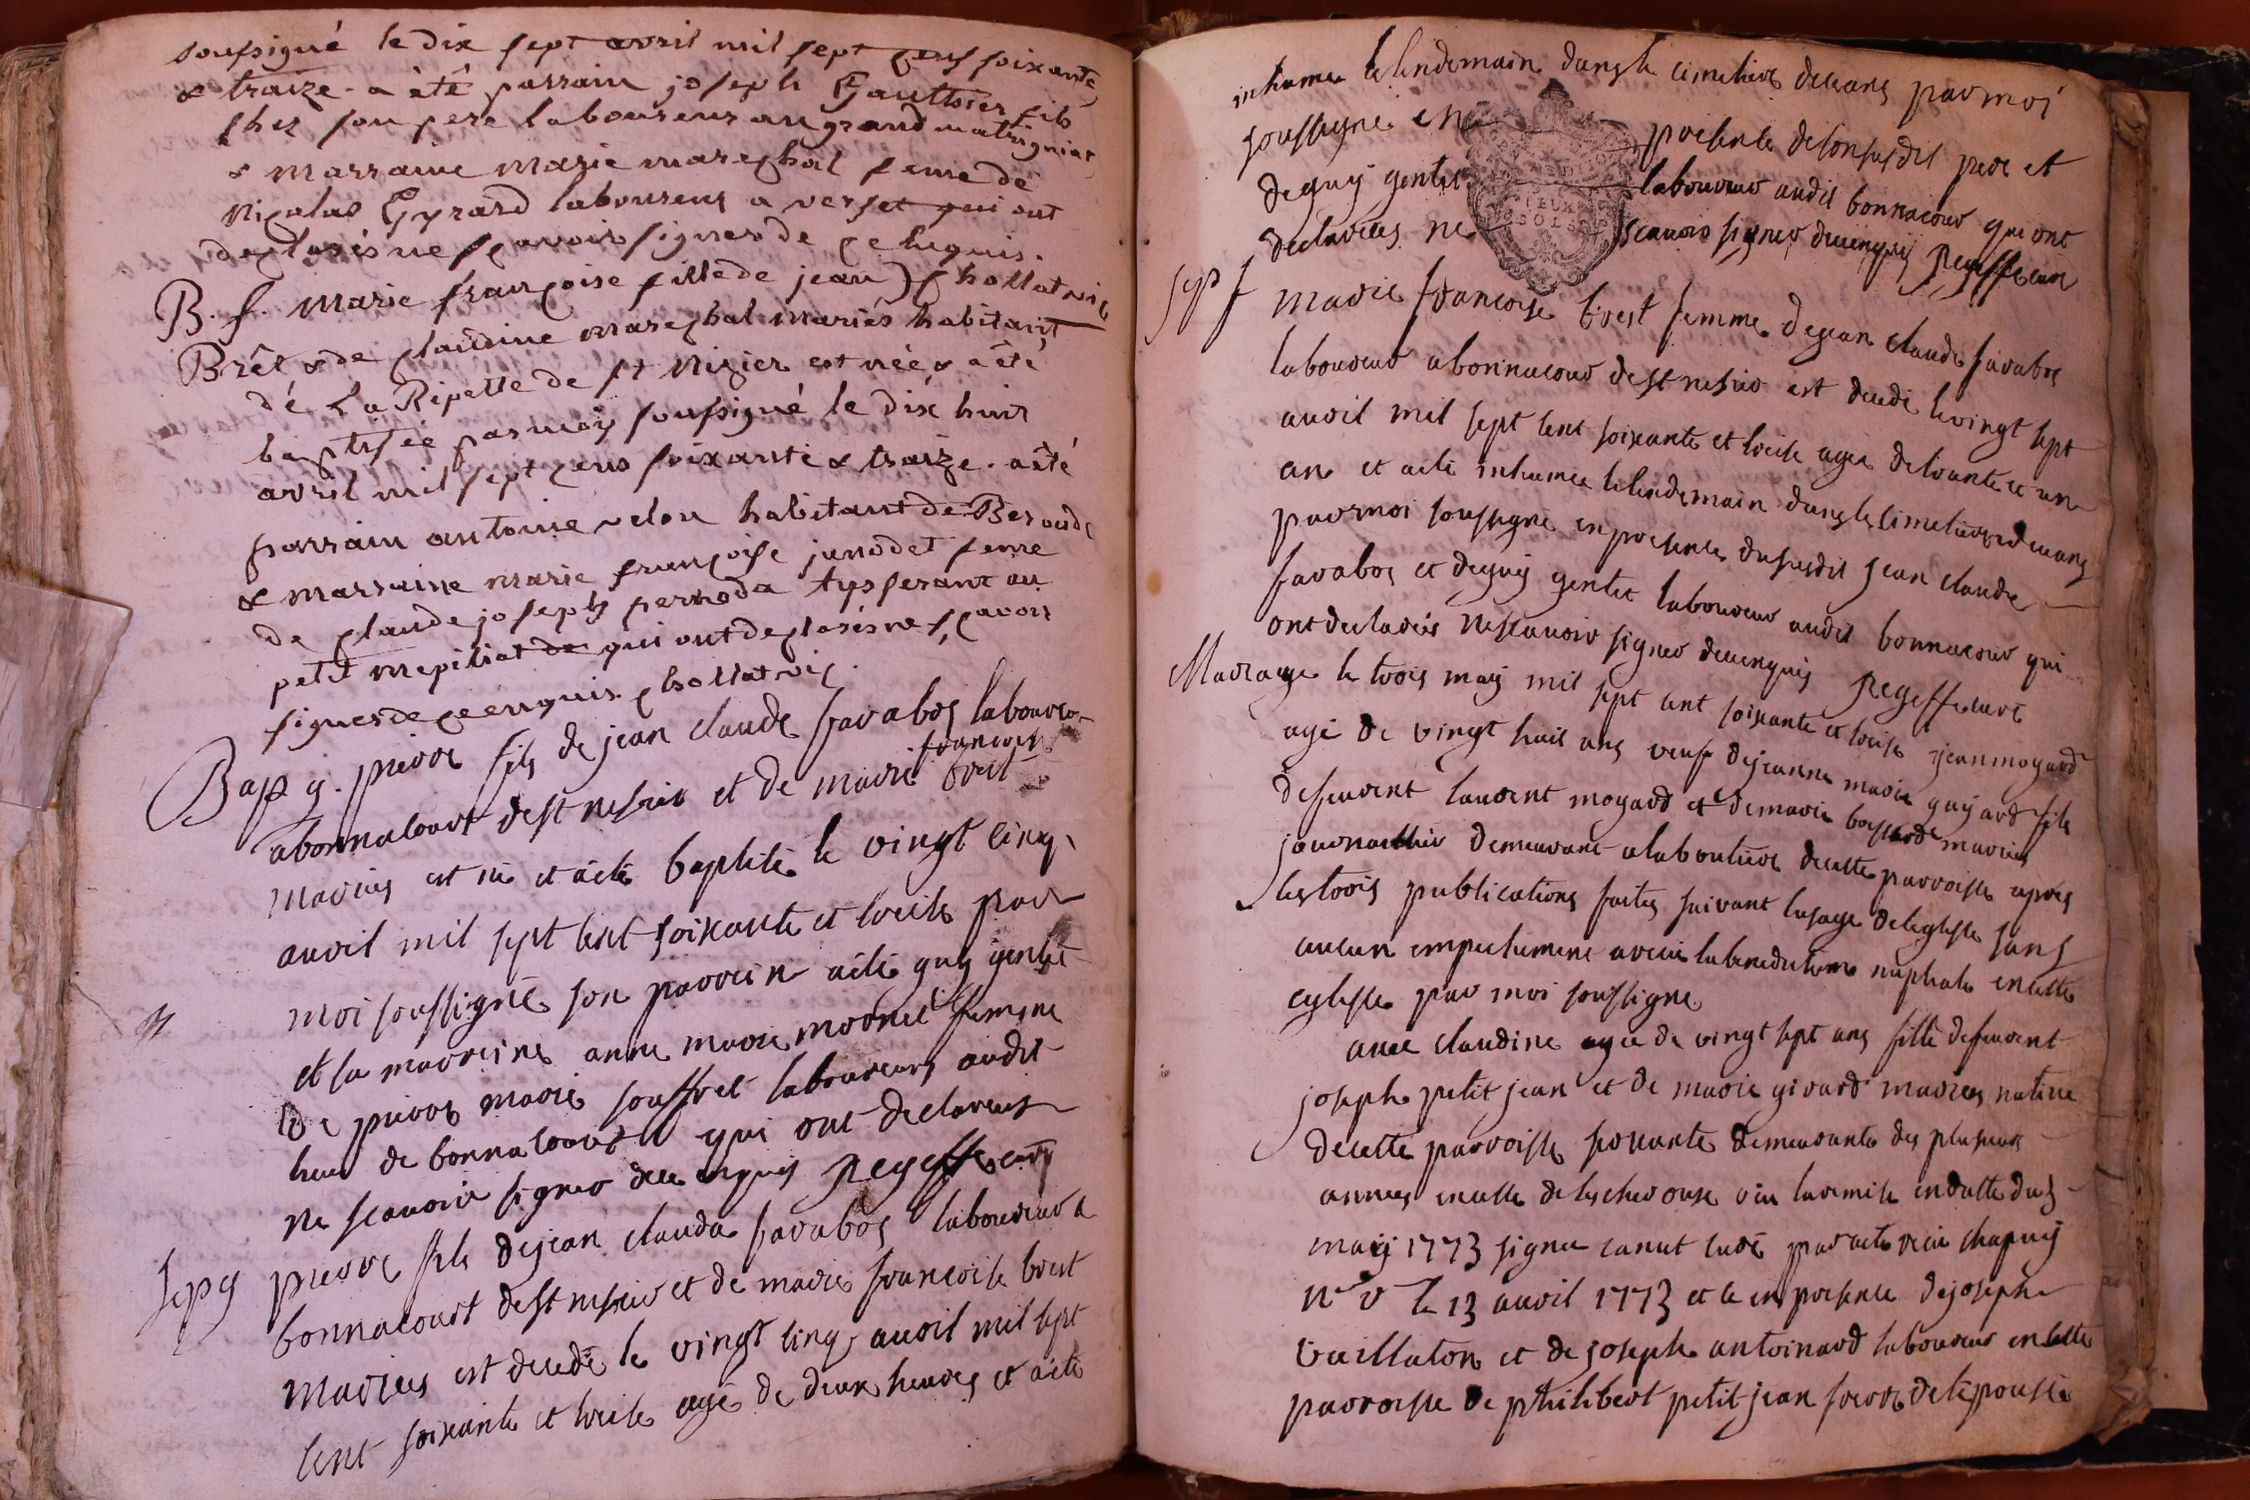 soussigné le dix sept avril mil sept cens soixante
& traize. a été parrain joseph Gauthier fils
chez son pere laboureur au grand
& marraine marie mareschal feme de
Nicolas Gyrard laboureur a verset qui ont
declarés ne sçavoir signer de ce enquis.
B. f. marie françoise fille de jean
Brêt & de claudine mareschal mariés habitant
dé La Ripette de st Nizier est née & a été
baptisée par moy soussigné le dix huit
avril mil sept cens soixante & traize. a été
parrain antoine velon habitant de
& marraine marie françoise junodet feme
de claude joseph pernoda tysserant au
petit mepiliat qui ont declarés ne sçavoir
signer de ce enquis. chollatvif
Bap g. pierre fils de jean claude favabos laboureur
françoise
abonnacourt de st nesier et de marie brest
mariés est né et a été baptisé le vingt cinq
avril mil sept cent soixante et treise par
moi soussigné son parrein a été guy gentet
et sa marreine anne marie moornet femme
de pierre marie souffret laboureurs audit
lieu de bonnacourt qui ont declarés
ne scavoir signer de ce enquis Regeffe curé
Sep g pierre fils de jean claude favabos laboureur a
bonnacourt de st nesier et de marie françoise brest
mariés est decedé le vingt cinq avril mil sept
cent soixante et treise agé de deux heures et a été
inhumé le lendemain dans le cimetiere deceans par moi
soussigné en presence de son susdit pere et
de guy gentet laboureur audit bonnacour qui ont
declarées ne scavoir signer de ce enquis Regeffe curé
Sep f marie françoise brest femme de jean claude favabos
laboureur a bonnacour de st nesier est decedé le vingt sept
avril mil sept cent soixante et treise agée de trante et un
an et a été inhumée le lendemain dans le cimetiere deceans
par moi soussigné en presence du susdit jean claude
favabos et de guy gentet laboureur audit bonnacour qui
ont declarées ne scavoir signer de ce enquis Regeffe curé
Mariage le trois may mil sept cent soixante et treise jean moyard
agé de vingt huit ans veuf de jeanne marie guyard fils
defeu vent laurent moyard et de marie bossard mariés
journallier demeurant a la boutiere de cette parroisse apres
les trois publications faites suivant lusage de leglise sans
aucun empechement a receu la benediction nuptiale en cette
eglisse par moi soussigné
avec claudine agée de vingt sept ans fille defeu vent
joseph petit jean et de marie girard mariés native
de cette parroisse servante demeurante des plusieurs
années en celle de lescheroux veu la remise en datte du
may 1773 signée canut curé par acte receu chapuy
nre le 13 avril 1773 et ce en presence de joseph
vuillaton et de joseph antoinard laboureur en cette
parroisse de philibert petit jean frere de lepouse